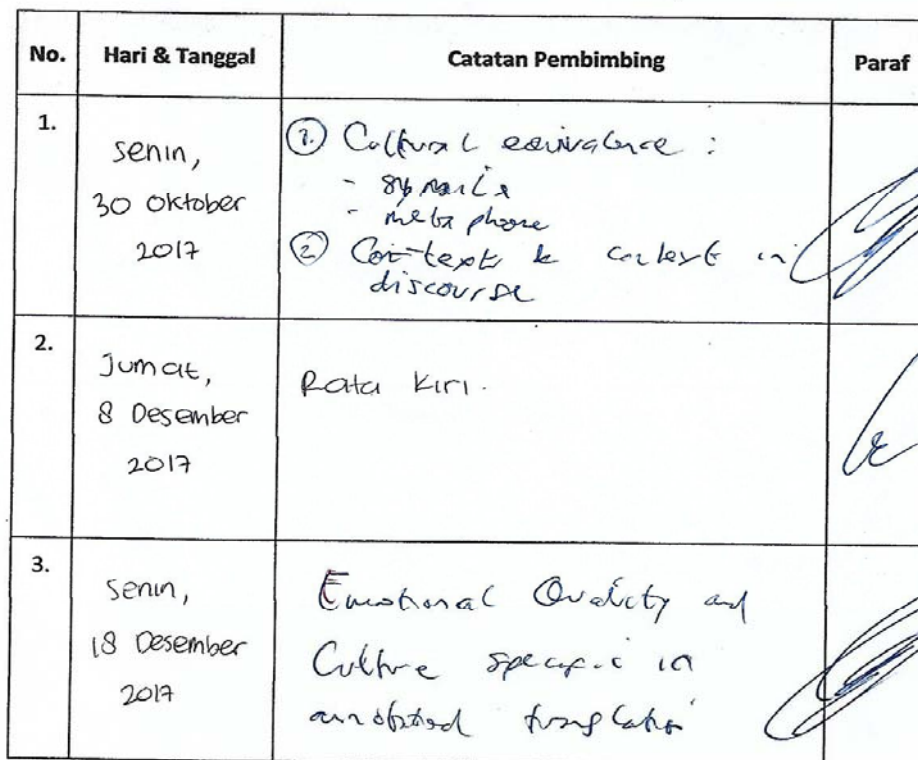 No. Hari & Tanggal Catatan Pembimbing Paraf
1.
Senin,
30 Oktober
2017
① Cultural equivalence :
-
- metaphore
② Co-text & context in
discourse
2.
Jumat,
8 Desember
2017
Rata Kiri.
3.
Senin,
18 Desember
2017
Emotional Quality and
Culture specific in
annotated translation